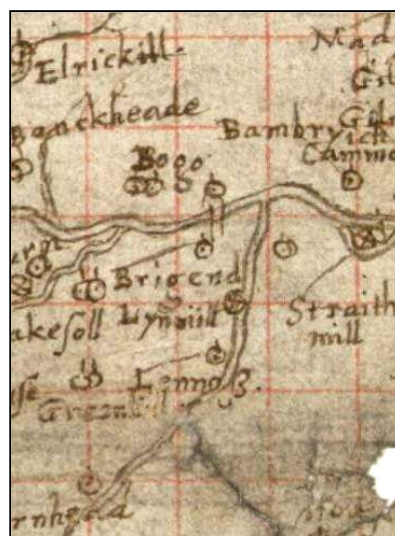 Elrickill.
Mad
Gil
onckheade
Gil
Bambryich
Cammo
Bogo
Brigend
Lynmill
Straith
mill
akesoll
Lynno
Green
rnhead